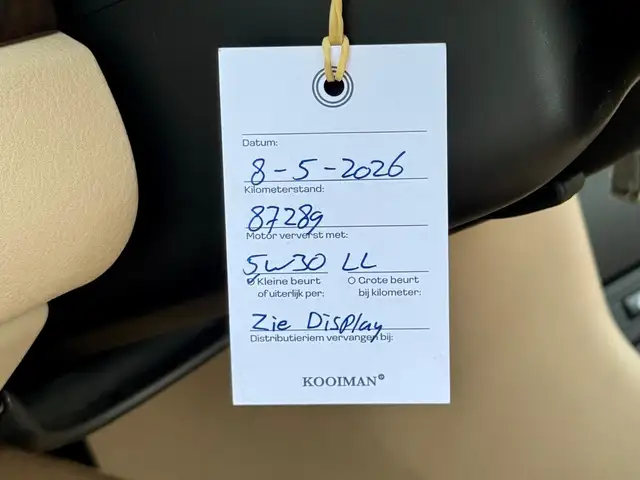 Datum:
8-5-2026
Kilometerstand:
87289
Motor ververst met:
5W30 LL
Kleine beurt
of uiterlijk per:
Grote beurt
bij kilometer:
Zie Display
Distributieriem vervangen bij:
KOOIMAN